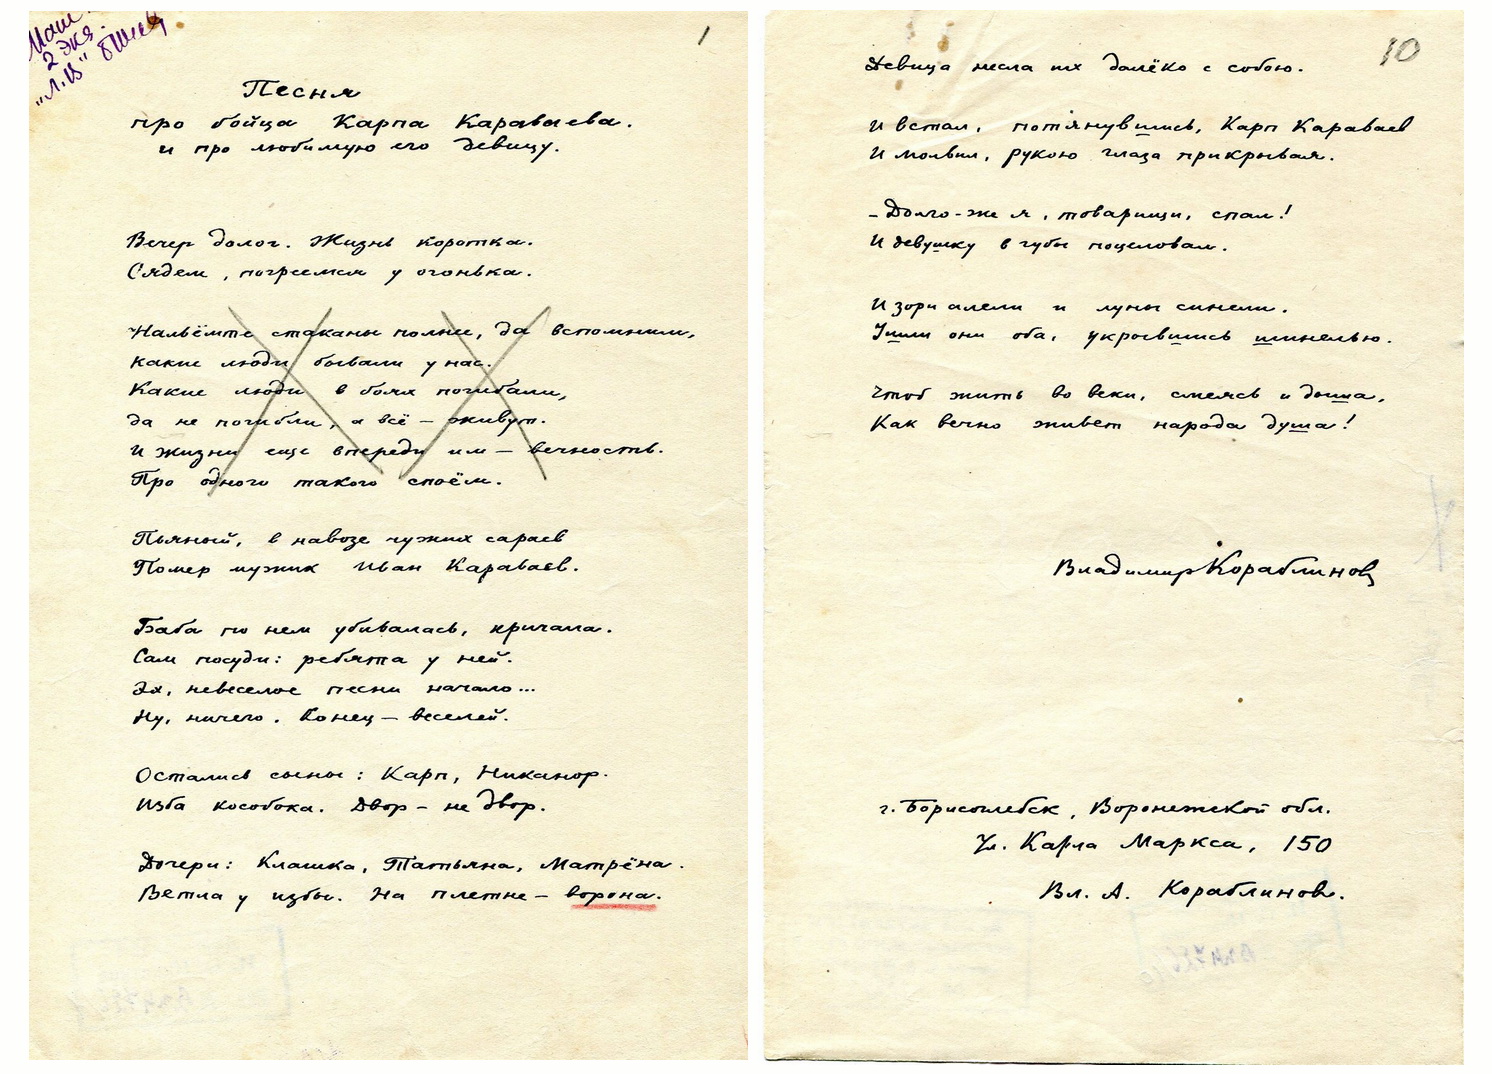 Маш.
2 экз.
"Л.И"
1
Песня
про бойца Карпа Караваева.
и про любимую его девицу.
Вечер долог. Жизнь коротка.
Сядем, погреемся у огонька.
Нальёмте стаканы полные, да вспомним,
какие люди бывали у нас.
Какие люди в боях погибали,
да не погибли, а всё – живут.
И жизни еще впереди им – вечность.
Про одного такого споём.
Пьяный, в навозе чужих сараев
Помер мужик Иван Караваев.
Баба по нем убивалась, кричала.
Сам посуди: ребята у ней.
Эх, невеселое песни начало...
Ну, ничего. Конец – веселей.
Остались сыны: Карп, Никанор.
Изба кособока. Двор – не двор.
Дочери: Клашка, Татьяна, Матрёна.
Ветла у избы. На плетне – ворона.
10
Девица несла их далёко с собою.
И встал, потянувшись, Карп Караваев
И молвил, рукою глаза прикрывая.
– Долго-же я, товарищи, спал!
И девушку в губы поцеловал.
И зори алели и луны синели.
Ушли они оба, укрывшись шинелью.
Чтоб жить во веки, смеясь и дыша,
Как вечно живет народа душа!
Владимир Кораблинов
г. Борисоглебск, Воронежской обл.
Ул. Карла Маркса, 150
Вл. А. Кораблинов.